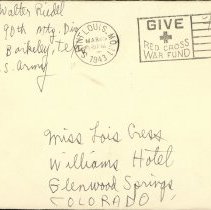 Walter Riedel
90th Mtg. Div
Barkeley, Tex
S. Army
ST. LOUIS, MO.
MAR
1943
GIVE
RED CROSS
WAR FUND
Miss Lois Cress
Williams Hotel
Glenwood Springs
COLORADO